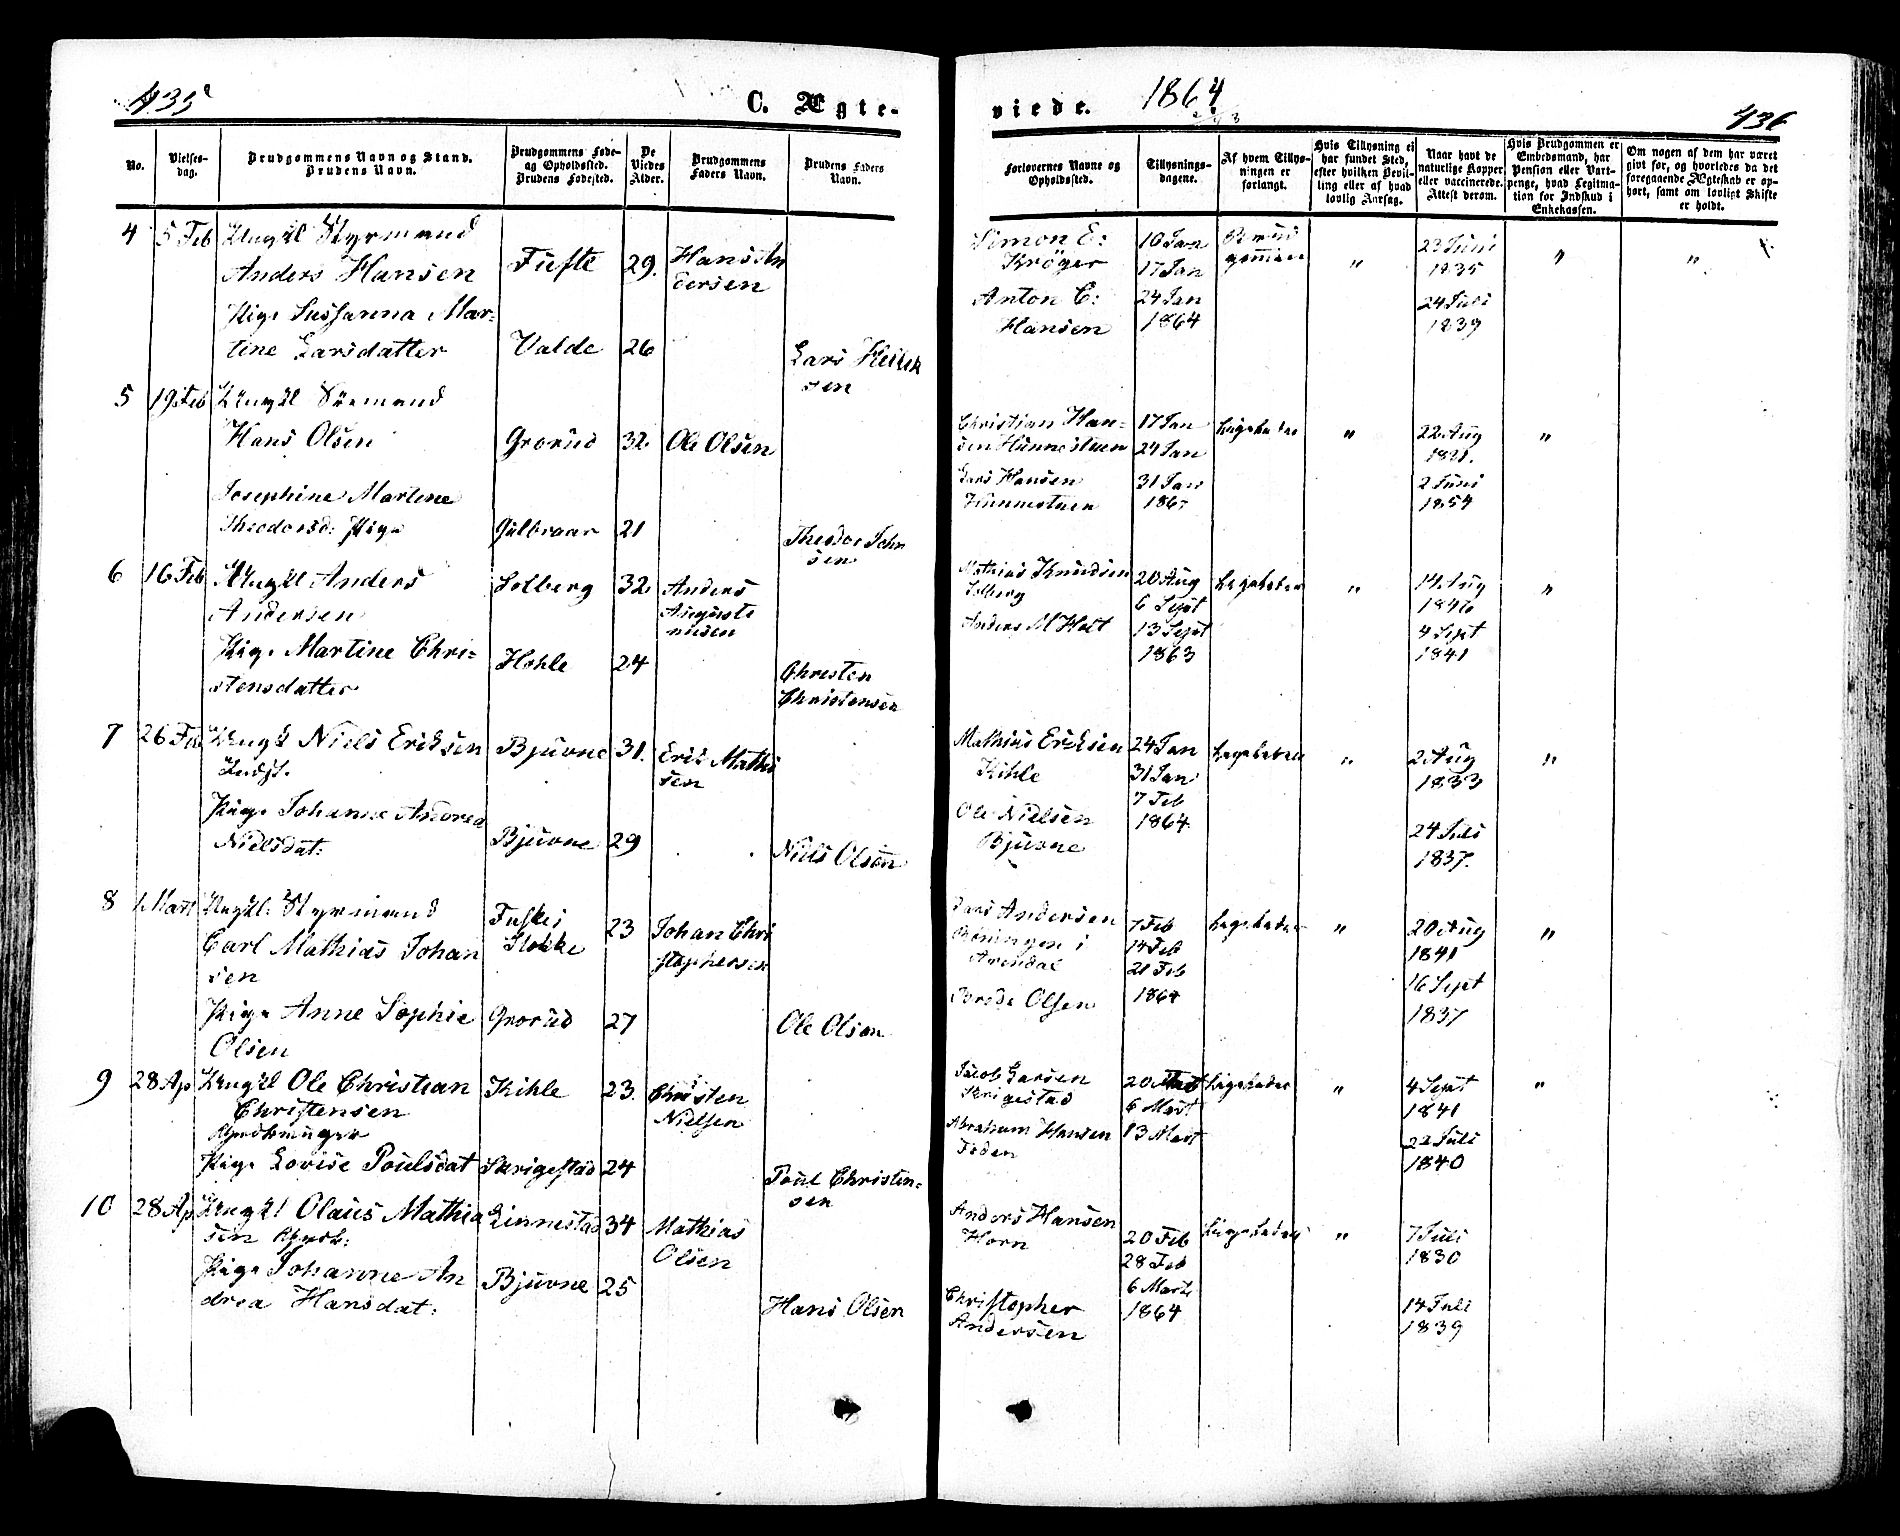 435
C. Ægte-
No.
Vielses-
dag.
Brudgommens Navn og Stand.
Brudens Navn.
Brudgommens Føde-
og Opholdssted.
Brudens Fødested.
De
Viedes
Alder.
Brudgommens
Faders Navn.
Brudens Faders
Navn.
4 5 Feb Ungkl Styrmand
Anders Hansen
29. Hans An
dersen
Pige Sussanna Mar-
tine Larsdatter
Valde 26
Lars
sen
5 19 Feb Ungkl Sømand
Hans Olsen
Grorud 32. Ole Olsen
Josephine Martine
Theodorsd: Pige
21
Theodor Joh
sen
6 16 Feb Ungkl Anders
Andersen
Solberg 32. Anders
Auguste
nusen
Pige Martine Chri-
stensdatter
24
Christen
Christensen
7 26 Feb Ungkl Niels Eriksen
Indst.
Bjuvne 31. Erik Mathi
sen
Pige Johanne Andrea
Nielsdat:
Bjuvne 29
Niels Olsen
8 1 Mart Ungkl: Styrmand
Carl Mathias Johan
sen
Stokke
23 Johan Chri
stophersen
Pige Anne Sophie
Olsen
Grorud 27
Ole Olsen
9 28 Ap Ungkl Ole Christian
Christensen
Kihle 23. Christen
Nielsen
Pige Lovise Poulsdat
Skrigestad 24
Poul Christen-
sen
10 28 Ap Ungkl Olaus Mathia
sen
Linnestad 34 Mathias
Olsen
Pige Johanne An
drea Hansdat:
Bjuvne 25
Hans Olsen
viede. 1864
436
Forlovernes Navne og
Opholdssted.
Tillysnings-
dagene.
Af hvem Tillys-
ningen er
forlangt.
Hvis Tillysning ei
har fundet Sted,
efter hvilken Bevil-
ling eller af hvad
lovlig Aarsag.
Naar havt de
naturlige Kopper
eller vaccinerede.
Attest derom.
Hvis Brudgommen er
Embedsmand, har
Pension eller Vart-
penge, hvad Legitima-
tion for Indskud i
Enkekassen.
Om nogen af dem har været
gift før, og hvorledes da det
foregaaende Ægteskab er op-
hørt, samt om lovligt Skifte
er holdt.
Simon E:
Krøger
Anton C:
Hansen
10 Jan
17 Jan
24 Jan
1864
Brud
gommen
"
23 Juni
1835
24 Juli
1839
"
"
Christian Han-
sen
Lars Hansen
17 Jan
24 Jan
31 Jan
Ligeledes
"
22 Aug
2 Juni
1854
"
Mathias Knudsen
Solberg
Anders M Holt
20 Aug
6 Sept
13 Sept
1863
Ligeledes
"
14 Aug
4 Sept
1841
"
Mathias Eriksen
Kihle
Ole Nielsen
Bjuvne
24 Jan
31 Jan
7 Feb
1864
Ligeledes
"
2 Aug
1833
24 Juli
1837.
"
Lars Andersen
i
Arendal
Olsen
7 Feb
14 Feb
21 Feb
1864
Ligeledes
"
20 Aug
1841
16 Sept
1837
"
Jacob Larsen
Skrigestad
Abraham Hansen
20
6 Mart
13 Mart
Ligeledes
"
4 Sept
1841
22 Juli
1840
"
Anders Hansen
Horn
Christopher
Andersen
20 Feb
28 Feb
6 Marts
1864
Ligeledes
"
7 Juli
1830
14 Juli
1839